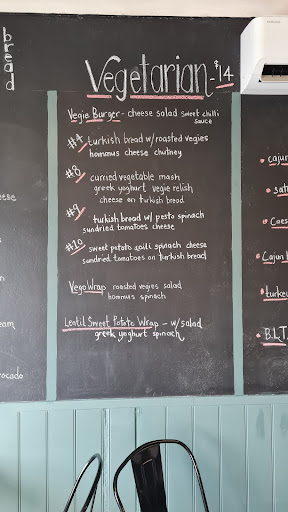 bread
Vegetarian - $14
Vegie Burger - cheese salad sweet chilli
sauce
#4 turkish bread w/roasted vegies
hommus cheese chutney
#8 curried vegetable mash
greek yoghurt vegie relish
cheese on turkish bread
#9 turkish bread w/ pesto spinach
sundried tomatoes cheese
#10 sweet potato aoili spinach cheese
sundried tomatoes on turkish bread
Vego Wrap roasted vegies salad
hommus spinach
Lentil Sweet Potato Wrap - w/salad
greek yoghurt spinach
cajun
Caes
Cajun
turkey
B.L.T.
ese
eam
ocado